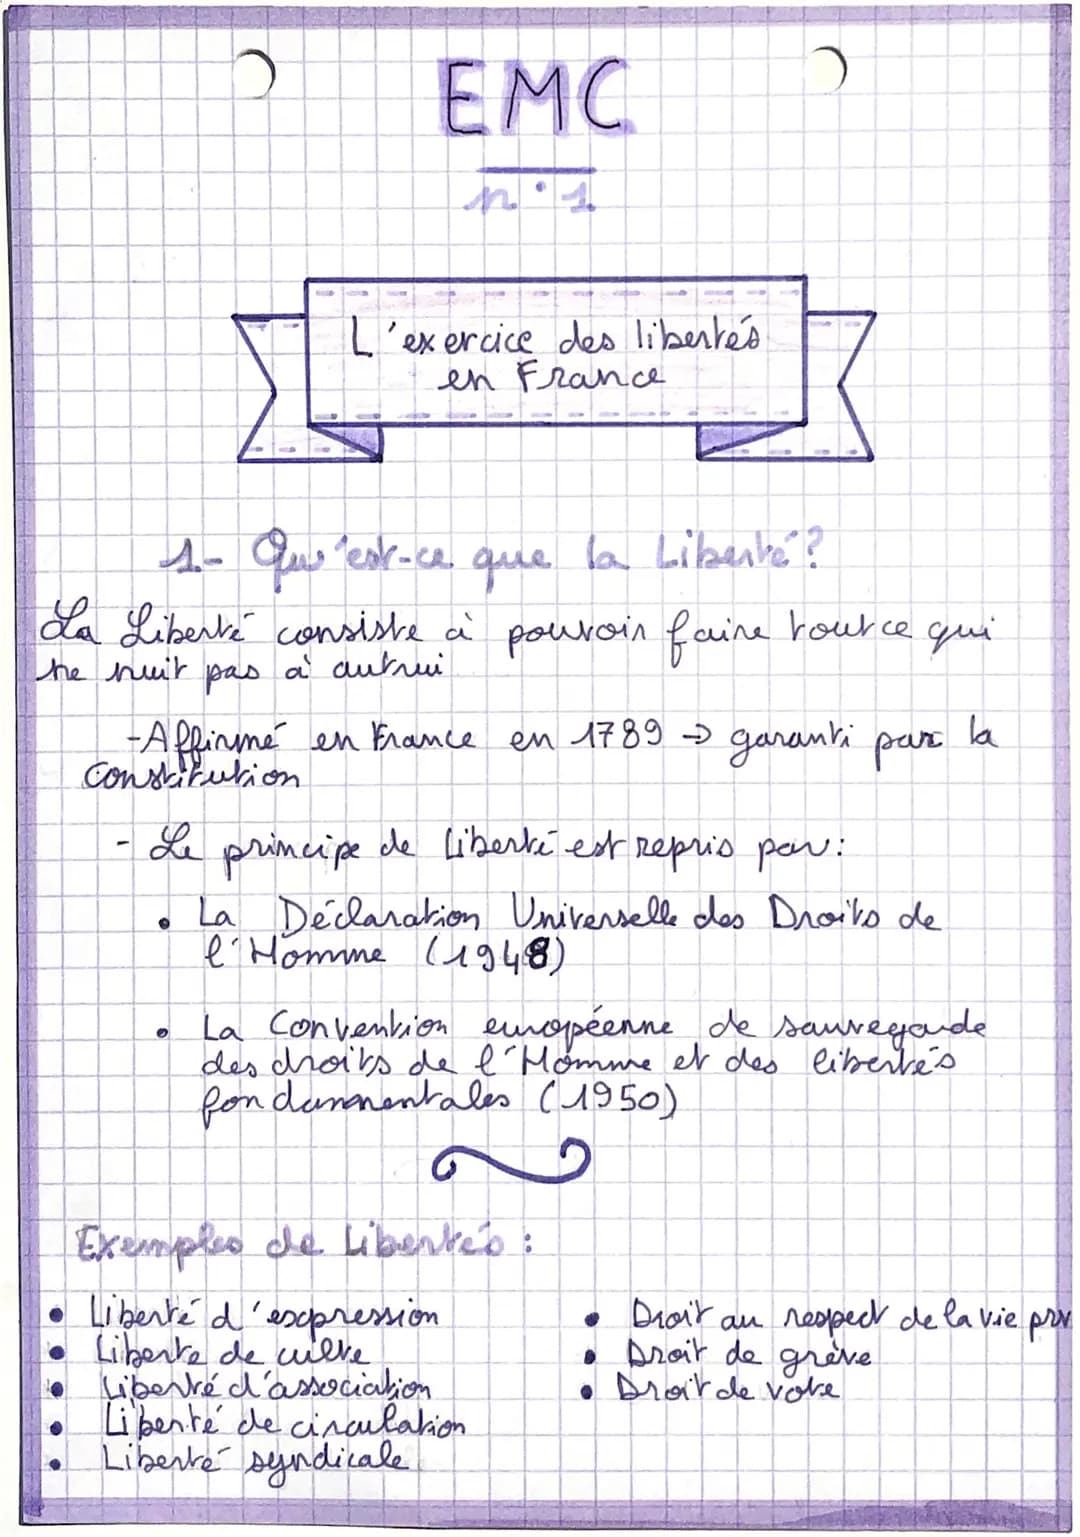 EMC
n°1
L'exercice des libertés
en France
1- Qu'est-ce que la Liberté?
La Liberté consiste à pouvoir faire tout ce qui
ne nuit pas à autrui
-Affirmé en France en 1789 → garanti par la
Constitution
- Le principe de Liberté est repris par:
• La Déclaration Universelle des Droits de
l'Homme (1948)
• La Convention européenne de sauvegarde
des droits de l'Homme et des libertés
fondammentales (1950)
Exemples de Libertés :
• Liberté d'expression
• Liberte de culte
• Liberté d'association
• Liberté de circulation
• Liberté syndicale
• Droit au respect de la vie priv
• Droit de grève
• Droit de vote